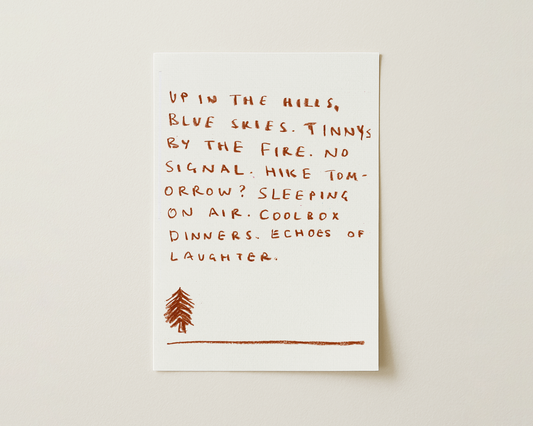 UP IN THE HILLS,
BLUE SKIES. TINNYS
BY THE FIRE. NO
SIGNAL. HIKE TOM-
ORROW? SLEEPING
ON AIR. COOLBOX
DINNERS. ECHOES OF
LAUGHTER.